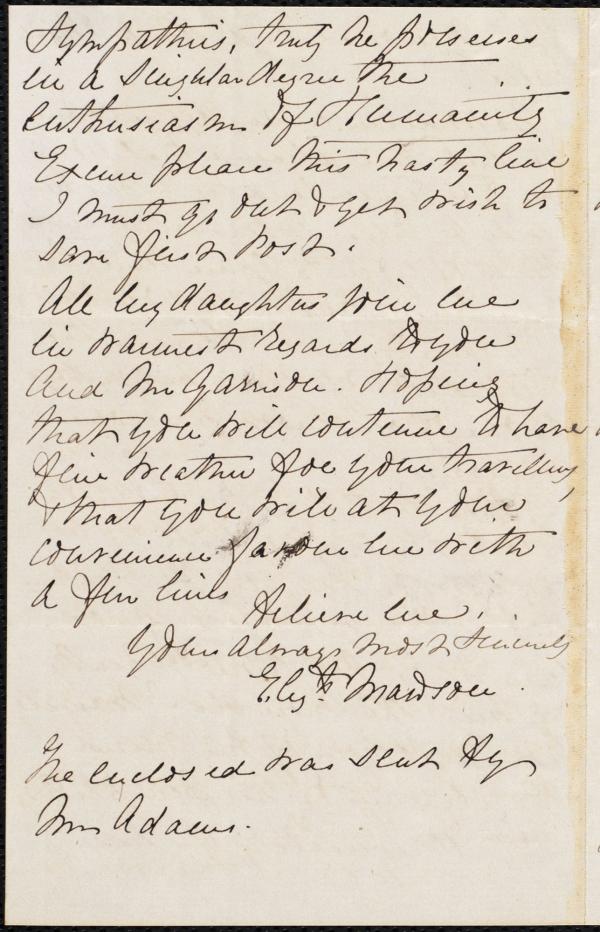 Sympathies, truly he possesses
in a singular degree the
enthusiasm of Humanity
Excuse please this hasty line
I must go out & get wish to
save first Post.
All my daughters join me
in warmest regards to you
and Mr Garrison. Hoping
that you will continue to have
fine weather for your travelling
& that you will at your
convenience favour me with
a few lines
Believe me,
Yours always most sincerely
Elizth Mawson.
The enclosed was sent by
Mr Adams.